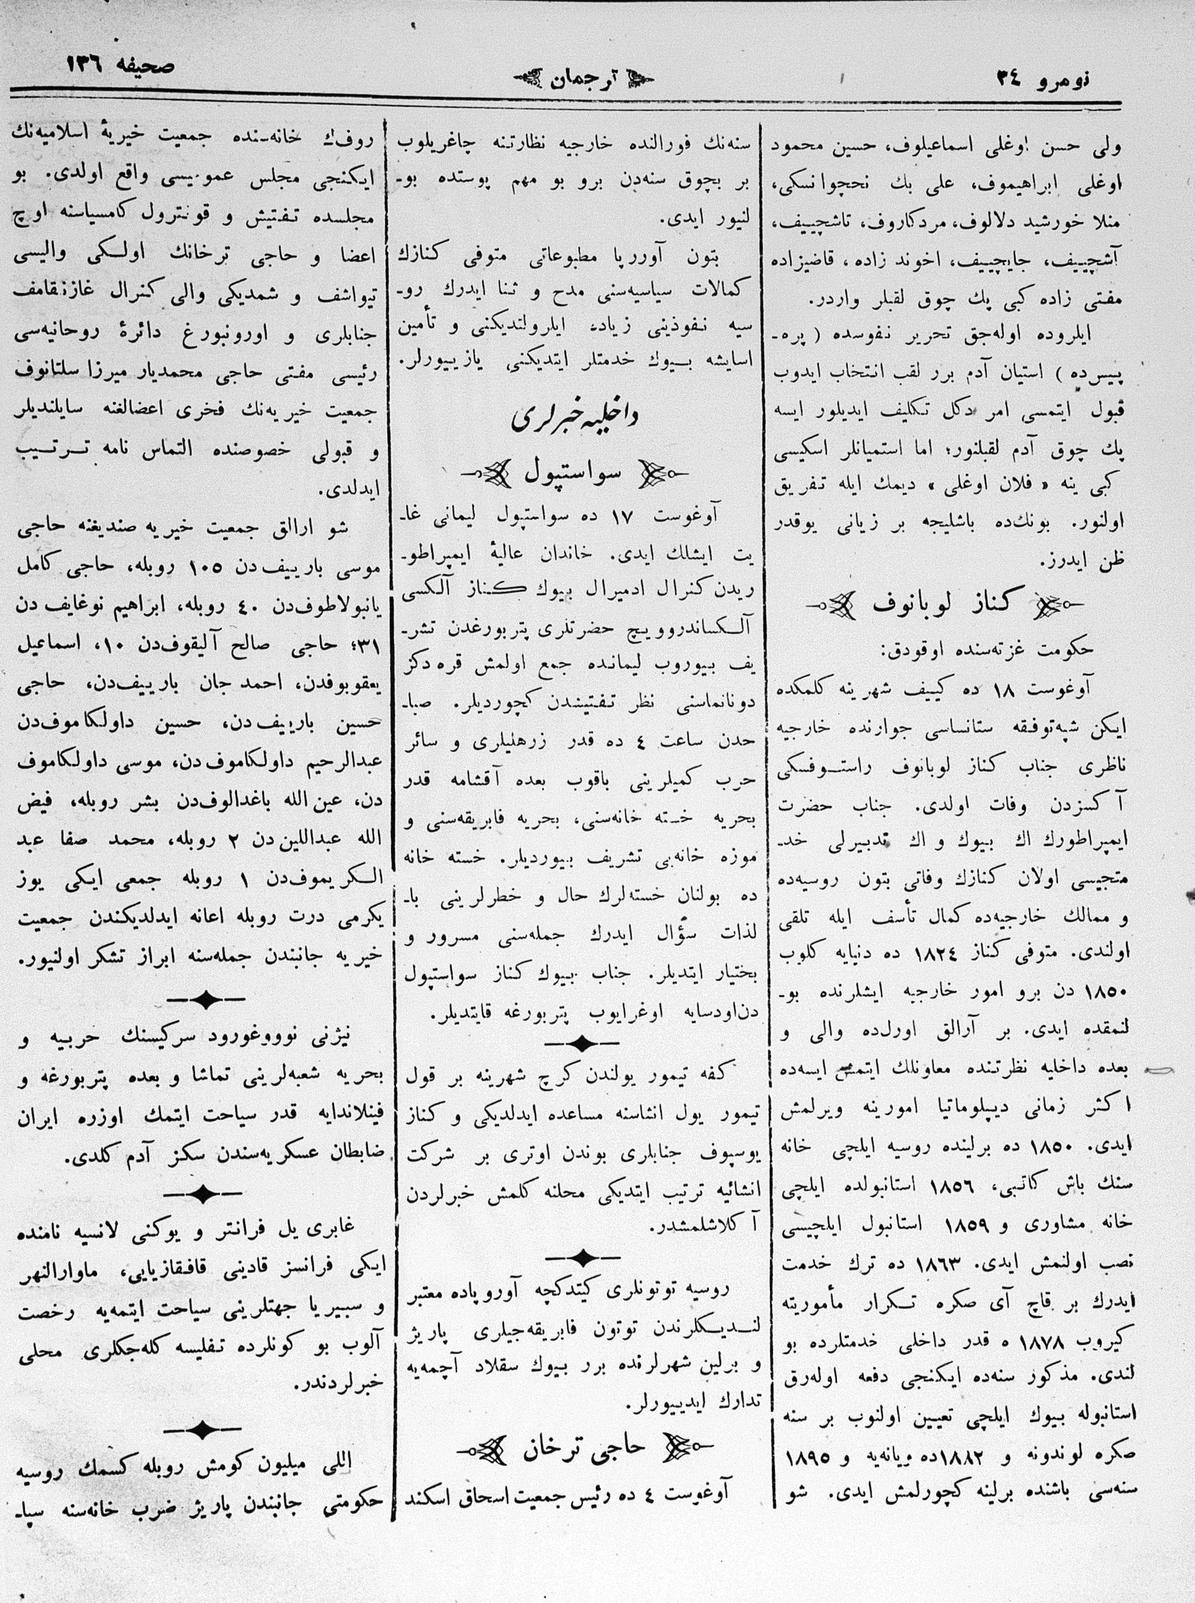 نومرو ٣٤
ترجمان
صحیفه ١٣٦
ولی حسن اوغلی اسماعیلوف، حسین محمود
اوغلی ابراهیموف، علی بك نحچوانسکی،
منلا خورشید دلالوف، مردکاروف، تاشچییف،
آشچییف، جایچییف، اخوند زاده، قاضیزاده
مفتی زاده کبی پك چوق لقبلر واردر.
ایلروده اوله‌جق تحریر نفوسده ( پره‌ـ
پیس‌ده ) استیان آدم برر لقب انتخاب ایدوب
قبول ایتمسی امر دکل تکلیف ایدیلور ایسه
پك چوق آدم لقبلنور؛ اما استمیانلر اسکیسی
کبی ینه « فلان اوغلی » دیمك ایله تفریق
اولنور. بونك‌ده باشلیجه بر زیانی یوقدر
ظن ایدرز.
کناز لوبانوف
حکومت غزته‌سنده اوقودق:
آوغوست ١٨ ده کییف شهرینه کلمکده
ایکن شپه‌توفقه ستانساسی جوارنده خارجیه
ناظری جناب کناز لوبانوف راستـوفسکی
آکسزدن وفات اولدی. جناب حضرت
ایمپراطورك اك بیوك و اك تدبیرلی خدـ
متجیسی اولان کنازك وفاتی بتون روسیه‌ده
و ممالك خارجیه‌ده کمال تأسف ایله تلقی
اولندی. متوفی کناز ١٨٢٤ ده دنیایه کلوب
١٨٥٠ دن برو امور خارجیه ایشلرنده بوـ
لنمقده ایدی. بر آرالق اورل‌ده والی و
بعده داخلیه نظرتنده معاونلك ایتمش ایسه‌ده
اکثر زمانی دیپلوماتیا امورینه ویرلمش
ایدی. ١٨٥٠ ده برلینده روسیه ایلچی خانه
سنك باش کاتبی، ١٨٥٦ استانبولده ایلچی
خانه مشاوری و ١٨٥٩ استانبول ایلچیسی
نصب اولنمش ایدی. ١٨٦٣ ده ترك خدمت
ایدرك بر قاچ آی صکره تکرار مأموریته
کیروب ١٨٧٨ ه قدر داخلی خدمتلرده بو
لندی. مذکور سنه‌ده ایکنجی دفعه اوله‌رق
استانبوله بیوك ایلچی تعیین اولنوب بر سنه
صکره لوندونه و ١٨٨٢ده ویانه‌یه و ١٨٩٥
سنه‌سی باشنده برلینه کچورلمش ایدی. شو
سنه‌نك فورالنده خارجیه نظارتنه چاغریلوب
بر بچوق سنه‌دن برو بو مهم پوستده بوـ
لنیور ایدی.
بتون آورپا مطبوعاتی متوفی کنازك
کمالات سیاسیه‌سنی مدح و ثنا ایدرك روـ
سیه نفوذینی زیاده ایلرولتدیکنی و تأمین
اسایشه بیوك خدمتلر ایتدیکنی یازییورلر.
داخلیه خبرلری
سواستپول
آوغوست ١٧ ده سواستپول لیمانی غاـ
یت ایشلك ایدی. خاندان عالیهٔ ایمپراطوـ
ریدن کنرال ادمیرال بیوك کناز آلکسی
آلـکساندروویچ حضرتلری پتربورغدن تشرـ
یف بیوروب لیمانده جمع اولمش قره دکز
دونانماسنی نظر تفتیشدن کچوردیلر. صباـ
حدن ساعت ٤ ده قدر زرهلیلری و سائر
حرب کمیلرینی باقوب بعده آقشامه قدر
بحریه خسته خانه‌سنی، بحریه فابریقه‌سنی و
موزه خانه‌یی تشریف بیوردیلر. خسته خانه
ده بولنان خسته‌لرك حال و خطرلرینی باـ
لذات سؤال ایدرك جمله‌سنی مسرور و
بختیار ایتدیلر. جناب بیوك کناز سواستپول
دن‌اودسایه اوغرایوب پتربورغه قایتدیلر.
کفه تیمور یولندن کرچ شهرینه بر قول
تیمور یول انشاسنه مساعده ایدلدیکی و کناز
یوسپوف جنابلری بوندن اوتری بر شرکت
انشائیه ترتیب ایتدیکی محلنه کلمش خبرلردن
آکلاشلمشدر.
روسیه توتونلری کیتدکچه آوروپاده معتبر
لنـدیـکلرندن توتون فابریقه‌جیلری پاریژ
و برلین شهرلرنده برر بیوك سقلاد آچمه‌یه
تدارك ایدییورلر.
حاجی ترخان
آوغوست ٤ ده رئیس جمعیت اسحاق اسکند
روف‌ك خانه‌سنده جمعیت خیریهٔ اسلامیه‌نك
ایکنجی مجلس عمومیسی واقع اولدی. بو
مجلسده تفتیش و قونترول کامسیاسنه اوچ
اعضا و حاجی ترخانك اولـکی والیسی
تیواشف و شمدیکی والی کنرال غازنقامف
جنابلری و اورونبورغ دائرهٔ روحانیه‌سی
رئیسی مفتی حاجی محمدیار میرزا سلتانوف
جمعیت خیریه‌نك فخری اعضالغنه سایلندیلر
و قبولی خصوصنده التماس نامه ترتـیب
ایدلدی.
شو ارالق جمعیت خیریه صندیغنه حاجی
موسی بارییف‌دن ١٠٥ روبله، حاجی کامل
یانبولاطوف‌دن ٤٠ روبله، ابراهیم نوغایف دن
٣١؛ حاجی صالح آلیقوف‌دن ١٠، اسماعیل
یعقوبوفدن، احمد جان بارییف‌دن، حاجی
حسین بارییف دن، حسین داولکاموف‌دن
عبدالرحیم داولکاموف دن، موسی داولکاموف
دن، عین الله باغدالوف‌دن بشر روبله، فیض
الله عبداللین دن ٢ روبله، محمد صفا عبد
الـکریموف‌دن ١ روبله جمعی ایکی یوز
یکرمی درت روبله اعانه ایدلدیکندن جمعیت
خیریه جانبندن جمله‌سنه ابراز تشکر اولنیور.
نیژنی نوووغورود سرکیسنك حربیه و
بحریه شعبه‌لرینی تماشا و بعده پتربورغه و
فینلاندایه قدر سیاحت ایتمك اوزره ایران
ضابطان عسکریه‌سندن سکز آدم کلدی.
غابری یل فرانتر و یوکنی لانسیه نامنده
ایکی فرانسز قادینی قافقازیایی، ماوارالنهر
و سبیریا جهتلرینی سیاحت ایتمه‌یه رخصت
آلوب بو کونلرده تفلیسه کله‌جکلری محلی
خبرلردندر.
اللی میلیون کومش روبله کسمك روسیه
حکومتی جانبندن پاریژ ضرب خانه‌سنه سپاـ